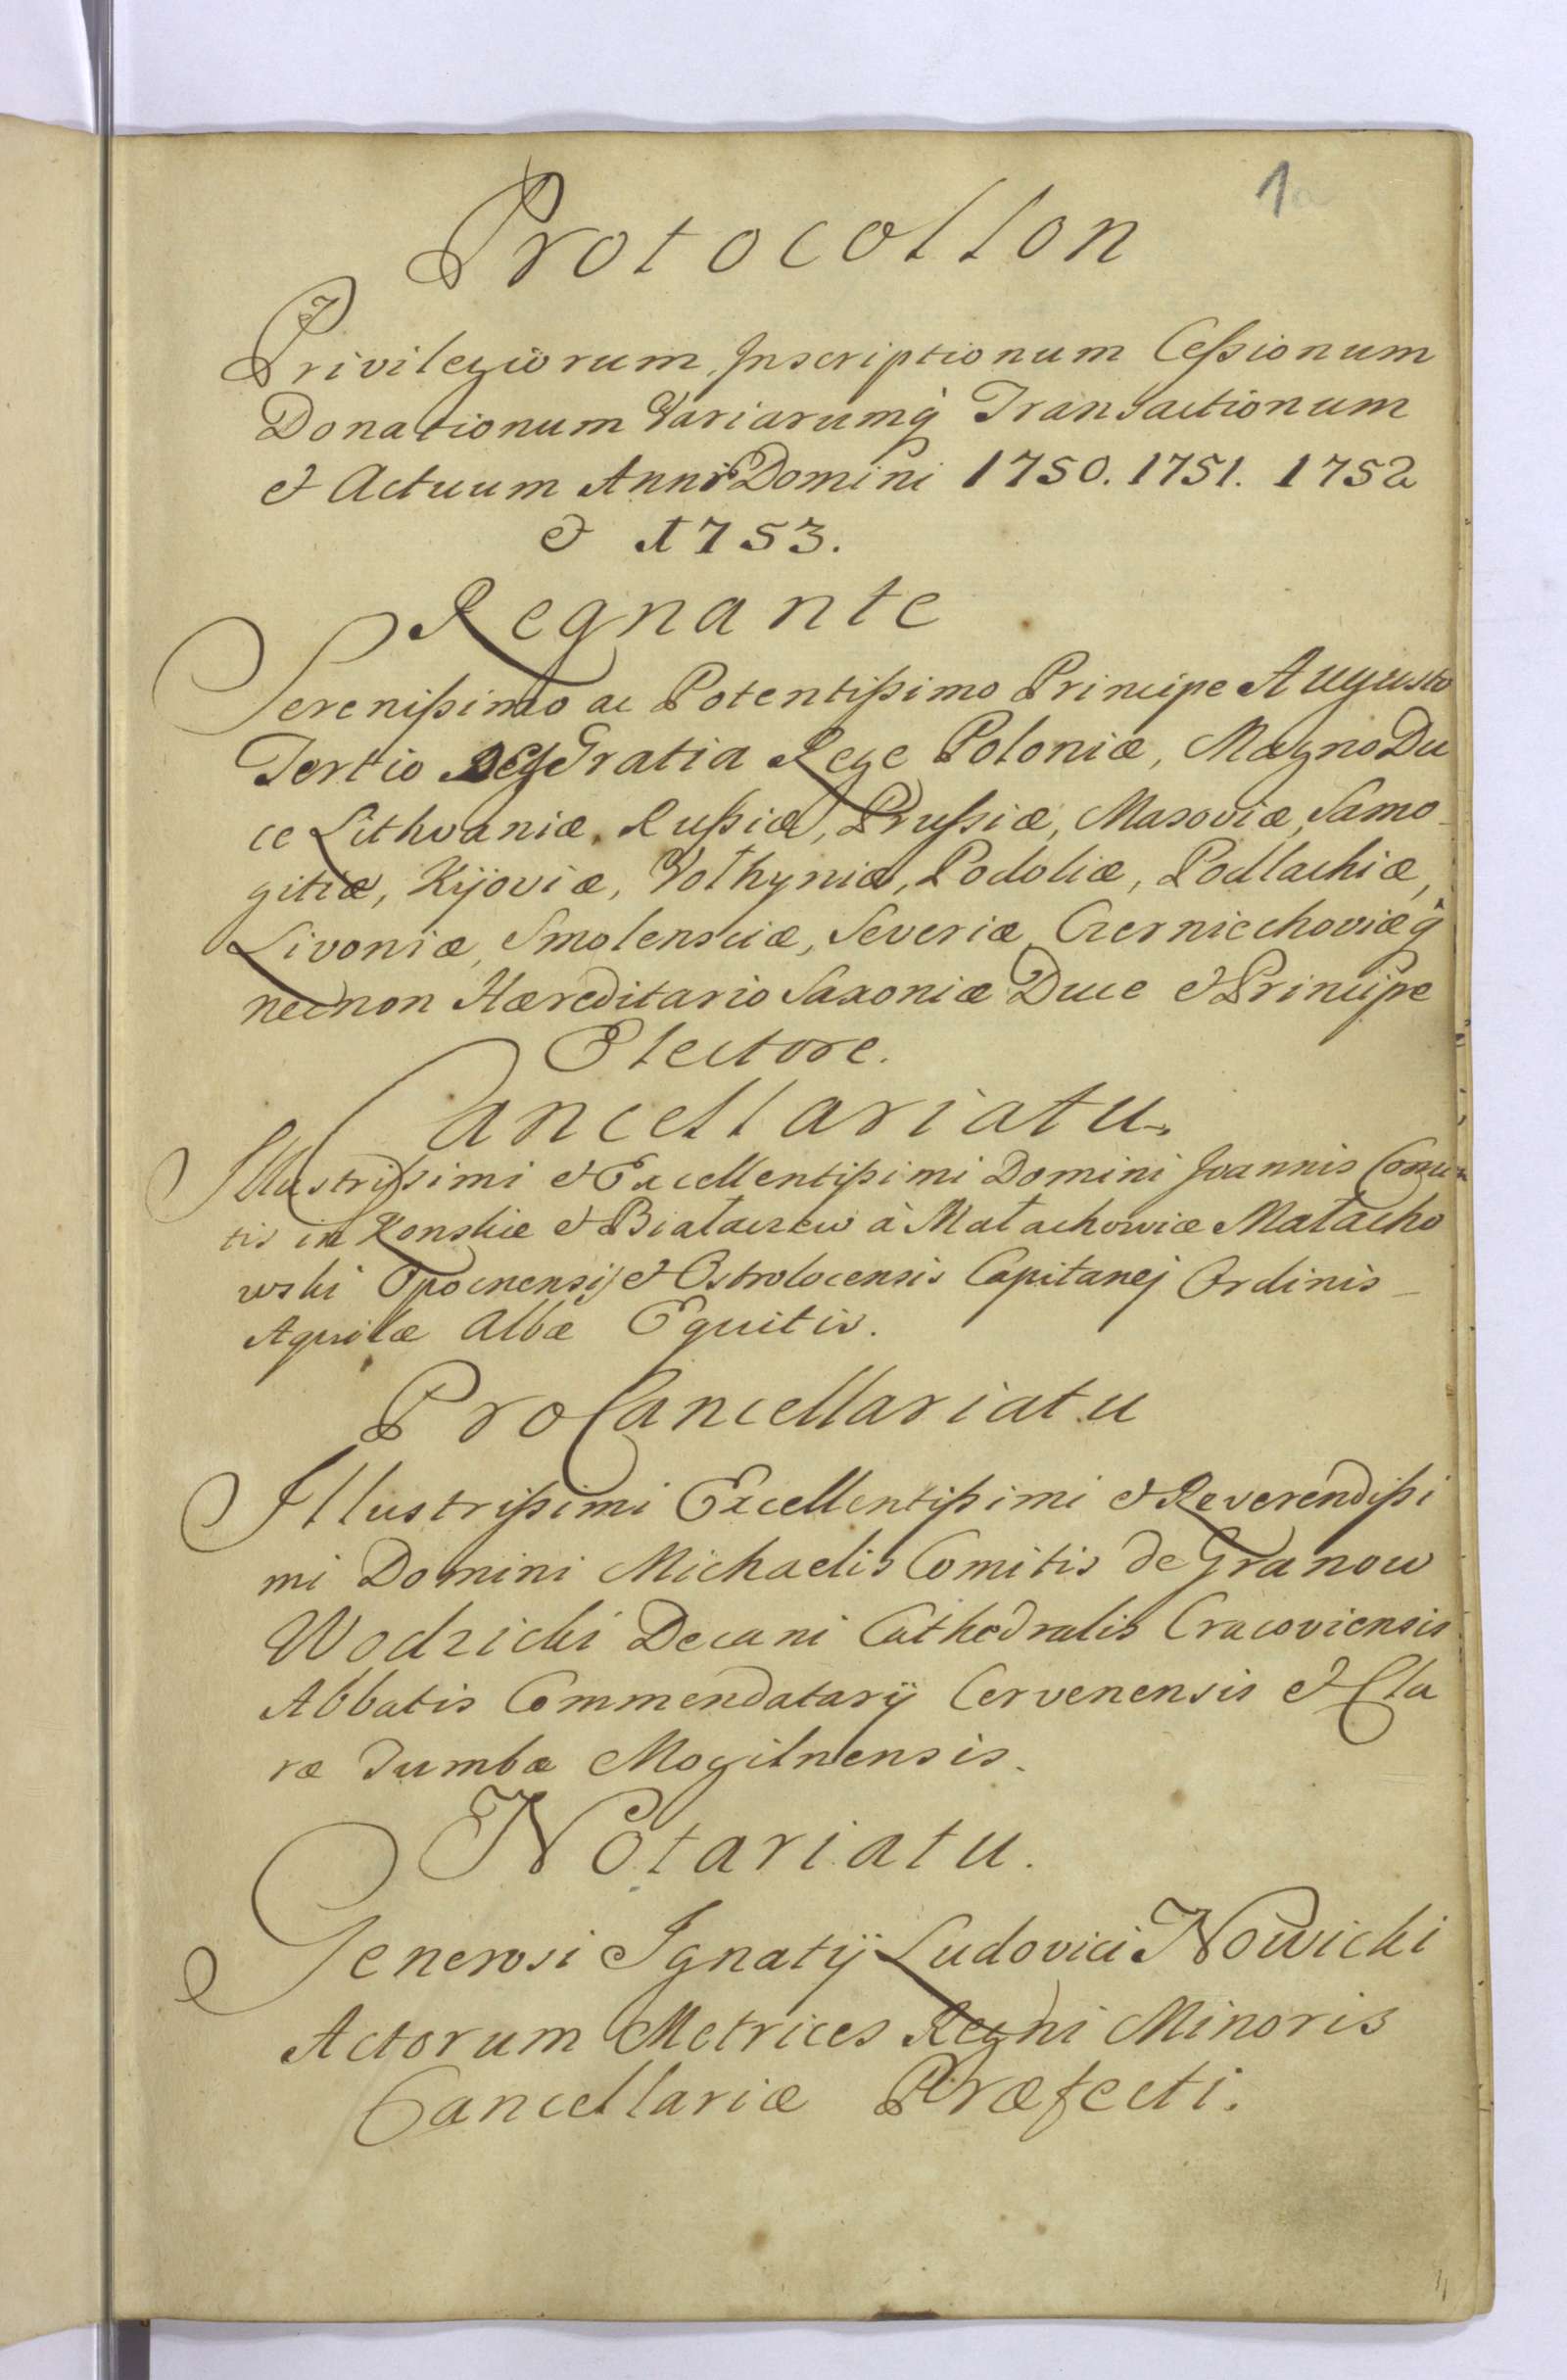 1
Protocollon
Privilegiorum, Inscriptionum Cessionum
Donationum Variarumq̀ Transactionum
et Actuum Anni Domini 1750. 1751. 1752
et 1753.
Regnante
Serenissimo ac Potentissimo Principe Augusto
Tertio Dei Gratia Rege Poloniæ, Magno Du
ce Lithvaniæ, Russiæ, Prussiæ, Masoviæ, Samo-
gitiæ, Kijoviæ, Vołhyniæ, Podoliæ, Podlachiæ,
Livoniæ, Smolensciæ, Severiæ, Czerniechoviæq̀
necnon Hæreditario Saxoniæ Duce et Principe
Electore.
Cancellariatu
Illustrissimi et Excellentissimi Domini Joannis Comi
tis in Konskie et Białaczew à Małachowice Małacho
wski Opocnensis et Ostrolocensis Capitanej Ordinis
Aquilæ Albæ Equitis.
ProCancellariatu
Illustrissimi Excellentissimi et Reverendissi
mi Domini Michaelis Comitis de Granow
Wodzicki Decani Cathedralis Cracoviensis
Abbatis Commendatarÿ Cervenensis et Cla
ræ Tumbæ Mogilnensis.
Notariatu.
Generosi Ignatÿ Ludovici Nowicki
Actorum Metrices Regni Minoris
Cancellariæ Præfecti.